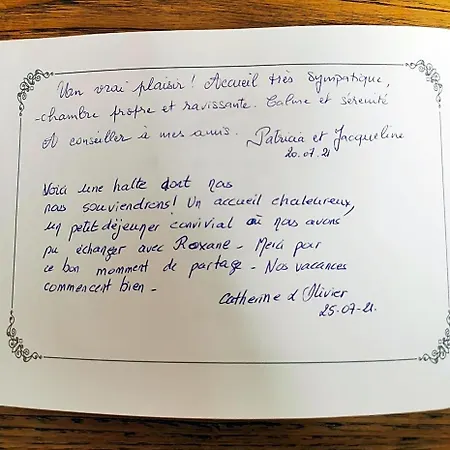 Un vrai plaisir ! Accueil très sympathique,
-chambre propre et ravissante. Calme et sérénité
A conseiller à mes amis. Patricia et Jacqueline
20.07.21
Voici une halte dont nous
nous souviendrons ! Un accueil chaleureux,
un petit déjeuner convivial où nous avons
pu échanger avec Roxane - Merci pour
ce bon moment de partage - Nos vacances
commencent bien -
Catherine & Olivier
25-07-21.